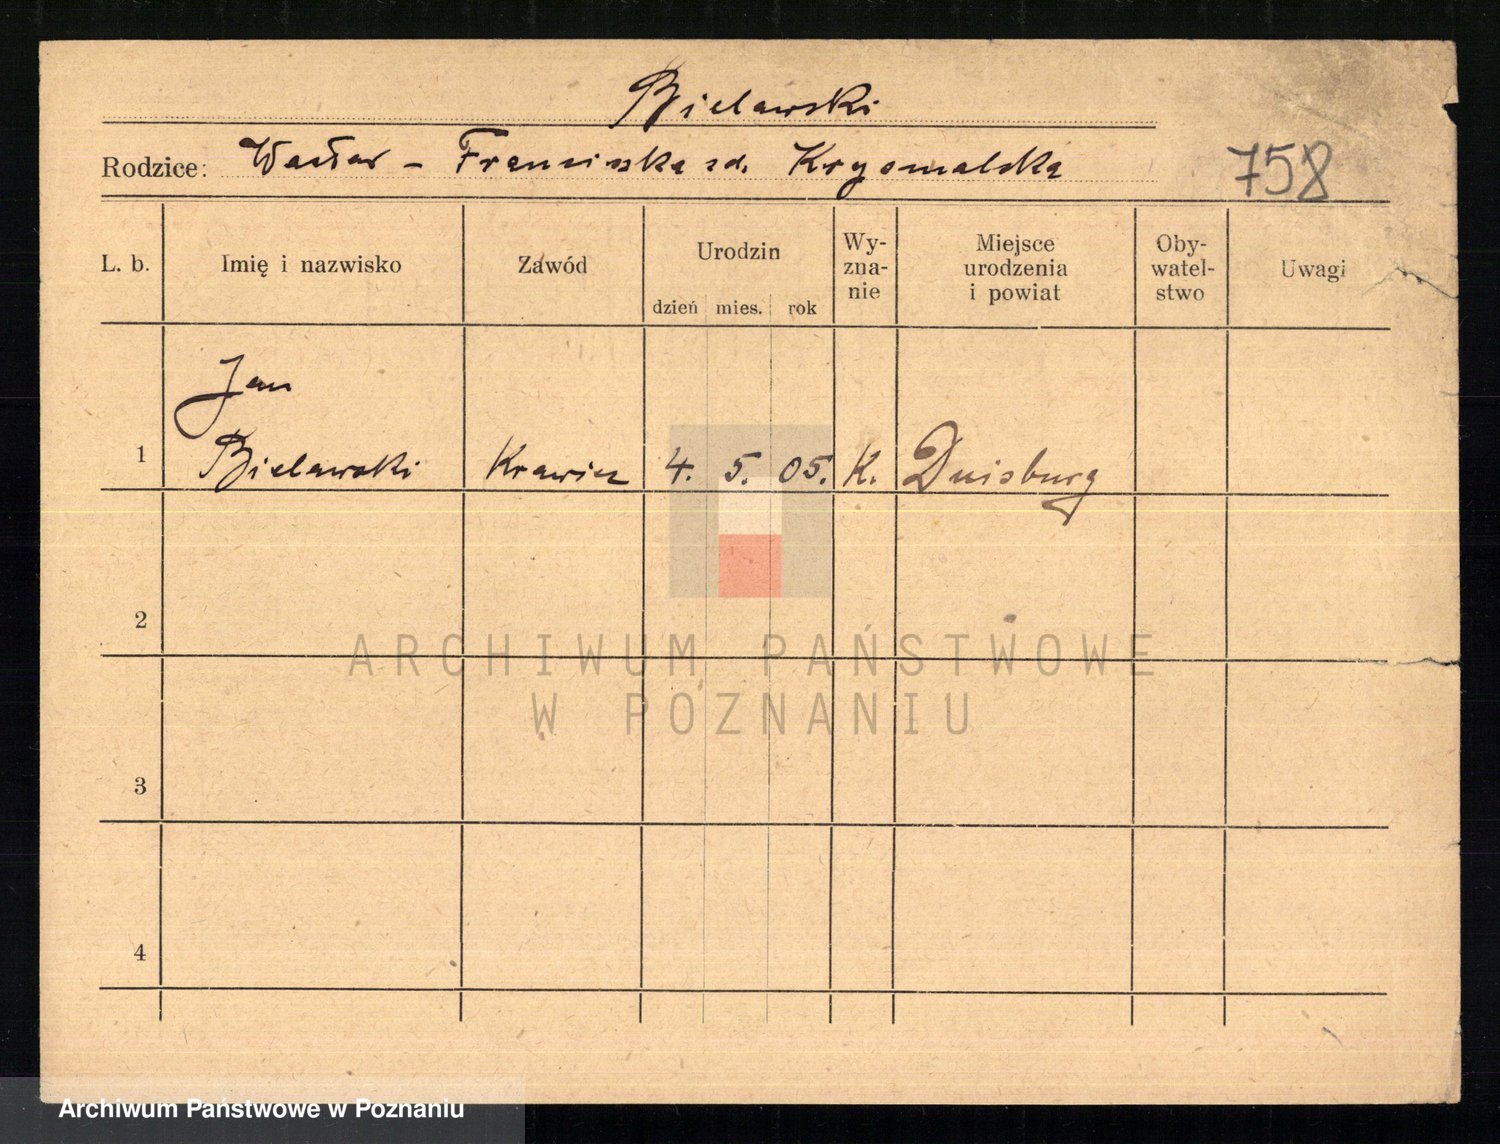 Bielawski
Rodzice: Wacław – Franciszka zd. Krysmalska
758
L. b. Imię i nazwisko Zawód Urodzin dzień mies. rok Wy-zna-nie Miejsce urodzenia i powiat Oby-watel-stwo Uwagi
Jan
1 Bielawski Krawiec 4. 5. 05. K. Duisburg
2
ARCHIWUM PAŃSTWOWE
W POZNANIU
3
4
Archiwum Państwowe w Poznaniu